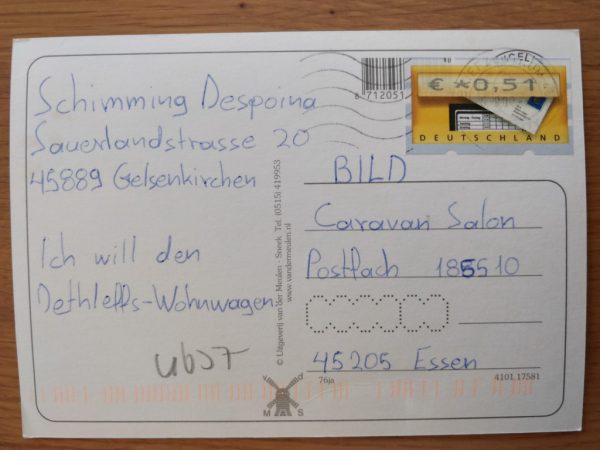 Schimming Despoina
Sauerlandstrasse 20
45889 Gelsenkirchen
Ich will den
Dethleffs-Wohnwagen.
© Uitgeverij van der Meulen - Sneek Tel. (0515) 419953
www.vandermeulen.nl
8 712051
€ *0,51
DEUTSCHLAND
BILD
Caravan Salon
Postfach 185510
45205 Essen
4101.17581
76ja
v d
M A S